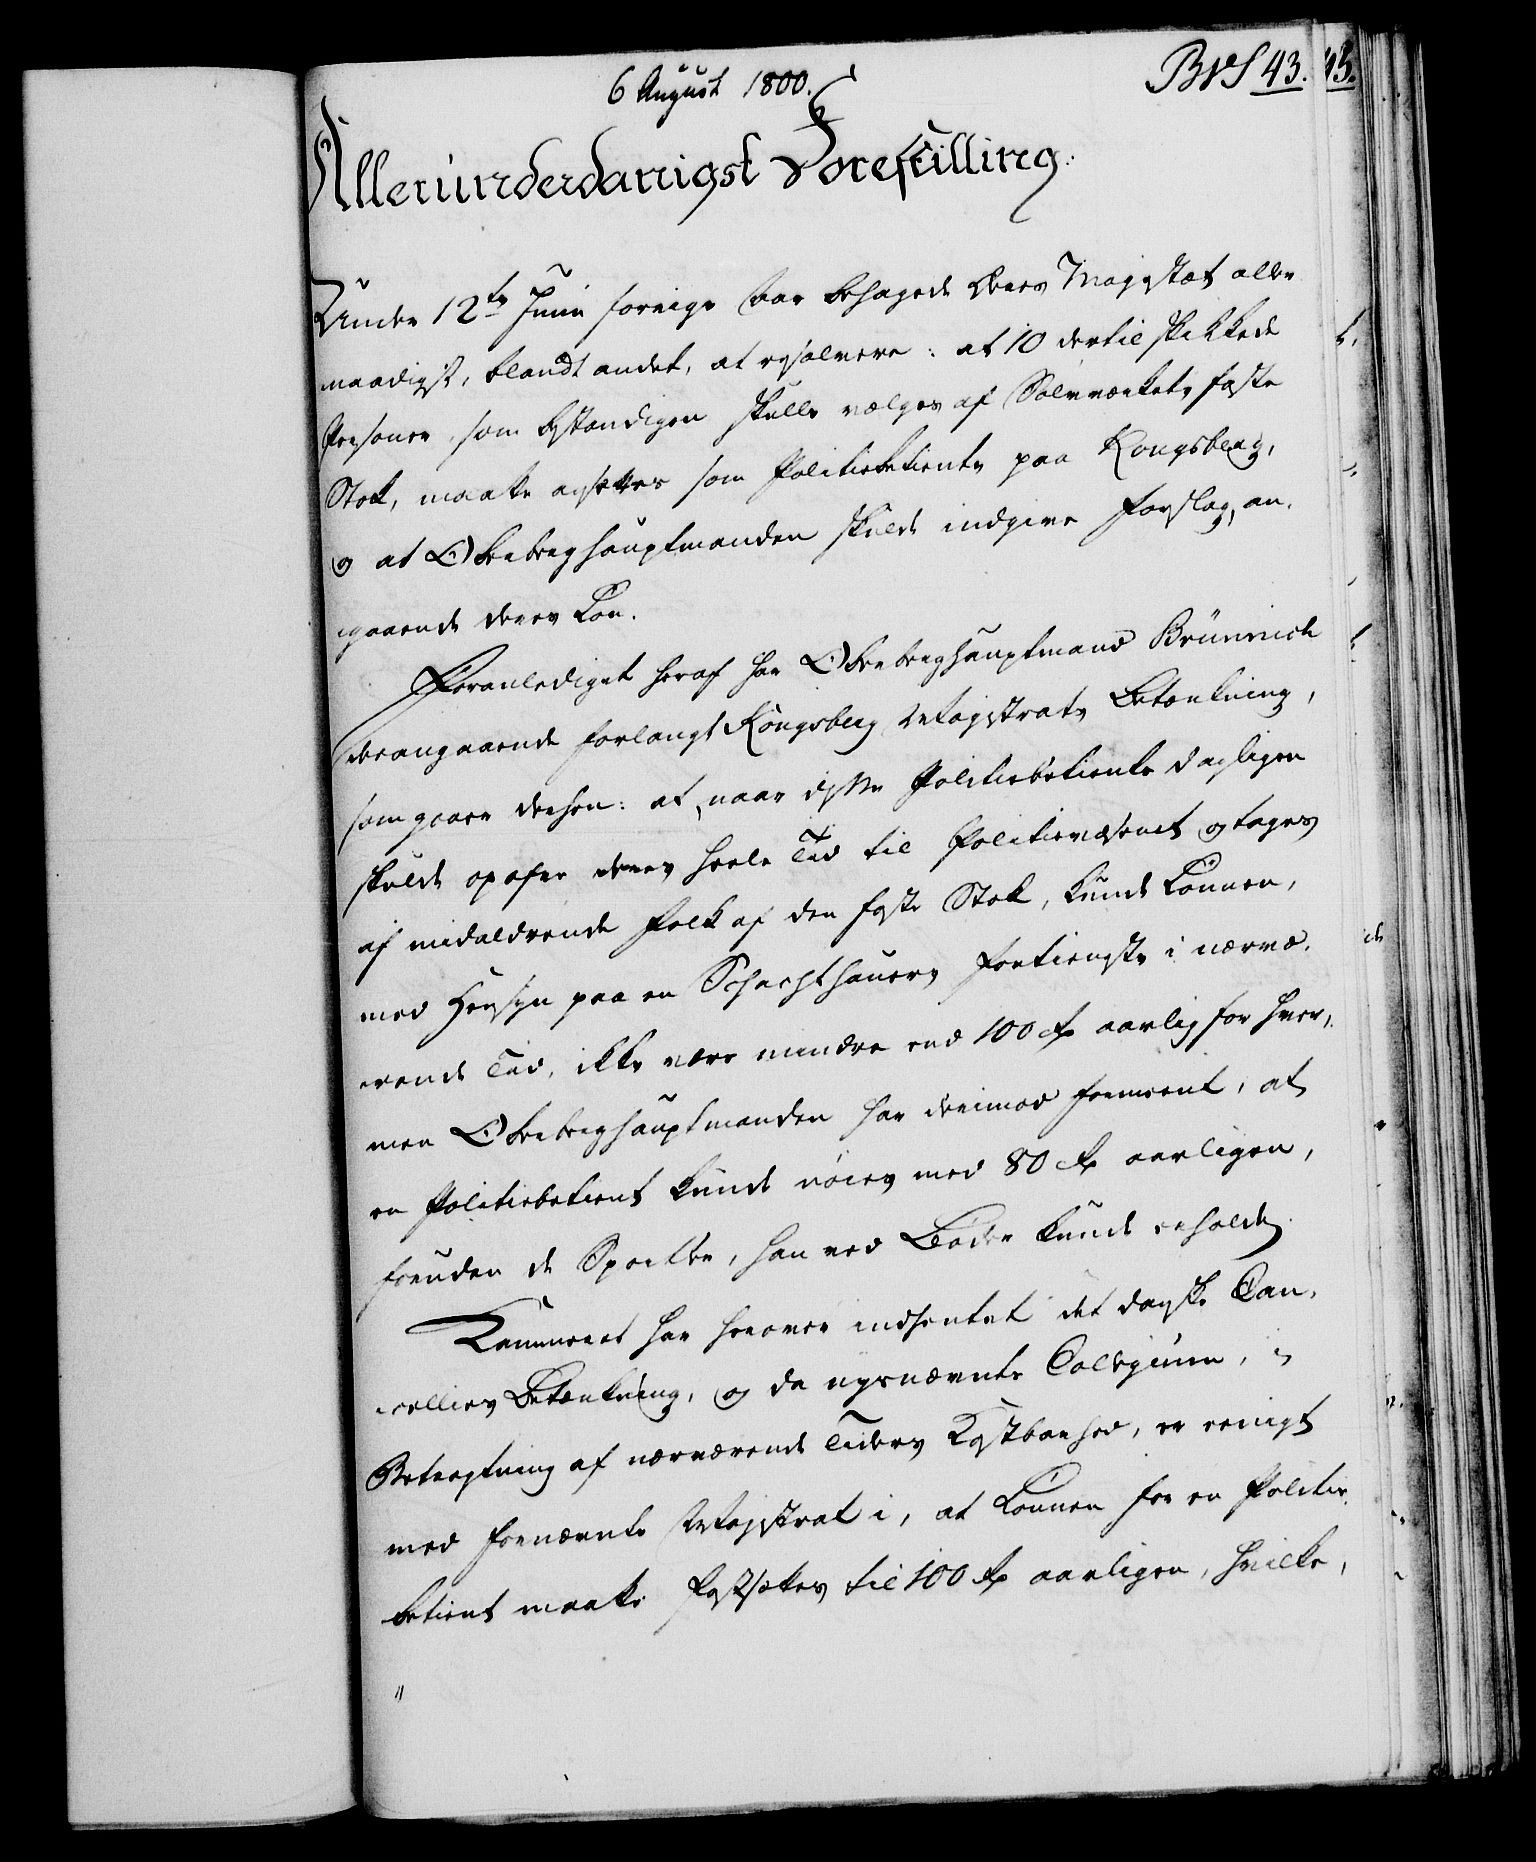 6 August 1800.
BVS 43. 43.
Allerunderdanigst Forestilling.
Under 12te Junii forrige Aar behagede Deres Majestæt aller
naadigst, blandt andet, at resolvere: at 10 dertil skikkede
Personer, som bestandigen skulle vælges af Sølvværkets faste
Stok, maatte ansættes som Politiebetiente paa Kongsberg,
og at Oberberghauptmanden skulde indgive Forslag, an-
gaaende deres Løn.
Foranlediget heraf har Oberberghauptmand Brünnich
derangaaende forlangt Kongsberg Magistrats Betænkning,
som gaaer derhen: at, naar disse Politiebetiente dagligen
skulde opofre deres heele Tid til Politievæsenet og tages
af midaldrende Folk af den faste Stok, kunde Lønnen,
med Hensyn paa en Schachthauers Fortieneste i nærvæ-
rende Tid, ikke være mindre end 100 Rd aarlig for hver,
men Oberberghauptmanden har derimod formeent, at
en Politiebetient kunde nöies med 80 Rd aarligen,
foruden de Sportler, han ved Bøder kunde erholde.
Kammeret har herover indhentet det danske Can-
celliets Betænkning, og da nysnævnte Collegium, i
Betragtning af nærværende Tiders Kostbarhed, er eenigt
med fornævnte Magistrat i, at Lønnen for en Politie-
betient maatte fastsættes til 100 Rd aarligen, hvilke,
"